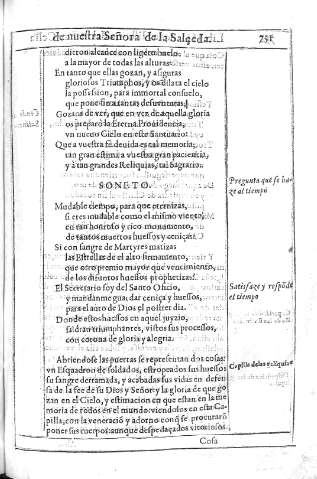 de nuestra Señora de la Salceda.
dieron alcance con ligero buelo
a la mayor de todas las alturas:
En tanto que ellas gozan, y asiguras
gloriosos Triumphos, y os dilata el cielo
la possession, para immortal consuelo,
que pone fin a tantas desuenturas,
Gozaos de ver, que en vez de aquella gloria
os preparò la eterna Prouidencia,
vn nueuo Cielo en este Santuario:
Que a vuestra fè deuida es tal memoria,
tan gran estima a vuestra gran paciencia,
y à tan grandes Reliquias, tal Sagrario.
SONETO.
Pregunta que se haze al tiempo
Mudable tiempo, para que eternizas,
si eres mudable como el mismo viento,
en tan honroso y rico monumento,
de tantos muertos huessos y cenizas?
Si con sangre de Martyres matizas
las Estrellas de el alto firmamento,
que otro premio mayor que vencimiento,
de los difuntos huessos prophetizas?
Satisfaze y respõde el tiempo
El Secretario soy del Santo Oficio,
y mandanme guardar ceniça y huessos,
para el auto de Dios el postrer dia.
Donde estos huessos en aquel juyzio,
saldran triumphantes, vistos sus processos,
con corona de gloria y alegria.
Abriendose las puertas se representan dos cosas:
vn Esquadron de soldados, estropeados sus huessos
su sangre derramada, y acabadas sus vidas en defensa
de la fee de su Dios y Señor y la gloria de que gozan
en el Cielo, y estimacion en que estan en la memoria
de todos en el mundo: viendolos en esta Capilla,
con la veneracion y adorno conq̃ se procurarõ
poner sus cuerpos: aunque despedaçados vitoriosos
Cosa